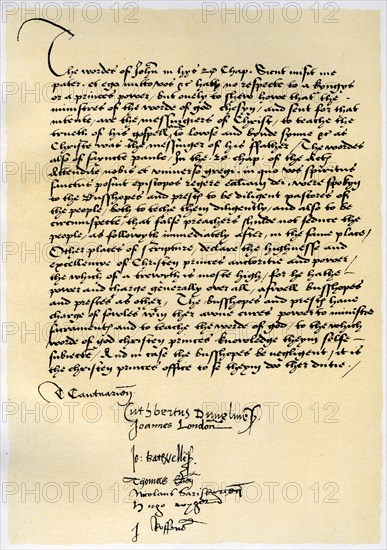 The wordes of John in hys 20 Chap. Sicut misit me
pater, et ego mitto vos &c hath no respecte to a kynges
or a princes power, but onely to shew howe that the
ministres of the worde of god chosyn, and sent for that
intente, are the messyngiers of Christe, to teache the
trueth of his gospell, and to loose and bynde synne &c as
Christe was the messinger of his ffather. The wordes
also of saynte paule, In the 20 chap. of the Acts
Attendite vobis et universo gregi, in quo vos spiritus
sanctus posuit episcopos regere ecclesiam dei, were spokyn
to the Busshopes and prests to be diligent pastores of
the people, both to teache them diligently, and also to be
circumspecte that false preachers sholde not seduce the
people, as followyth immediately after, in the same place,
Other places of scripture, declare the highnesse and
excellencye of Christen princes autoritie and power,
the which of a trewth is moste high, for he hathe
power and charge generally over all, aswell busshopes
and prestes as other. The busshopes and prests have
charge of sowles within ther awne cures, power to ministre
sacraments, and to teache the worde of god, to the which
worde of god christen princes knowledge theym self
subiecte, And in case the busshopes be negligent, it is
the christen princes office to se theym doo ther dutie.
T. Cantuarien
Cuthbertus Dunelmens
Joannes London
Jo: Bathwellens
Thomas Elien
Nicolaus Sarisburien
Hugo Wygorn
J Roffens
PHOTO12